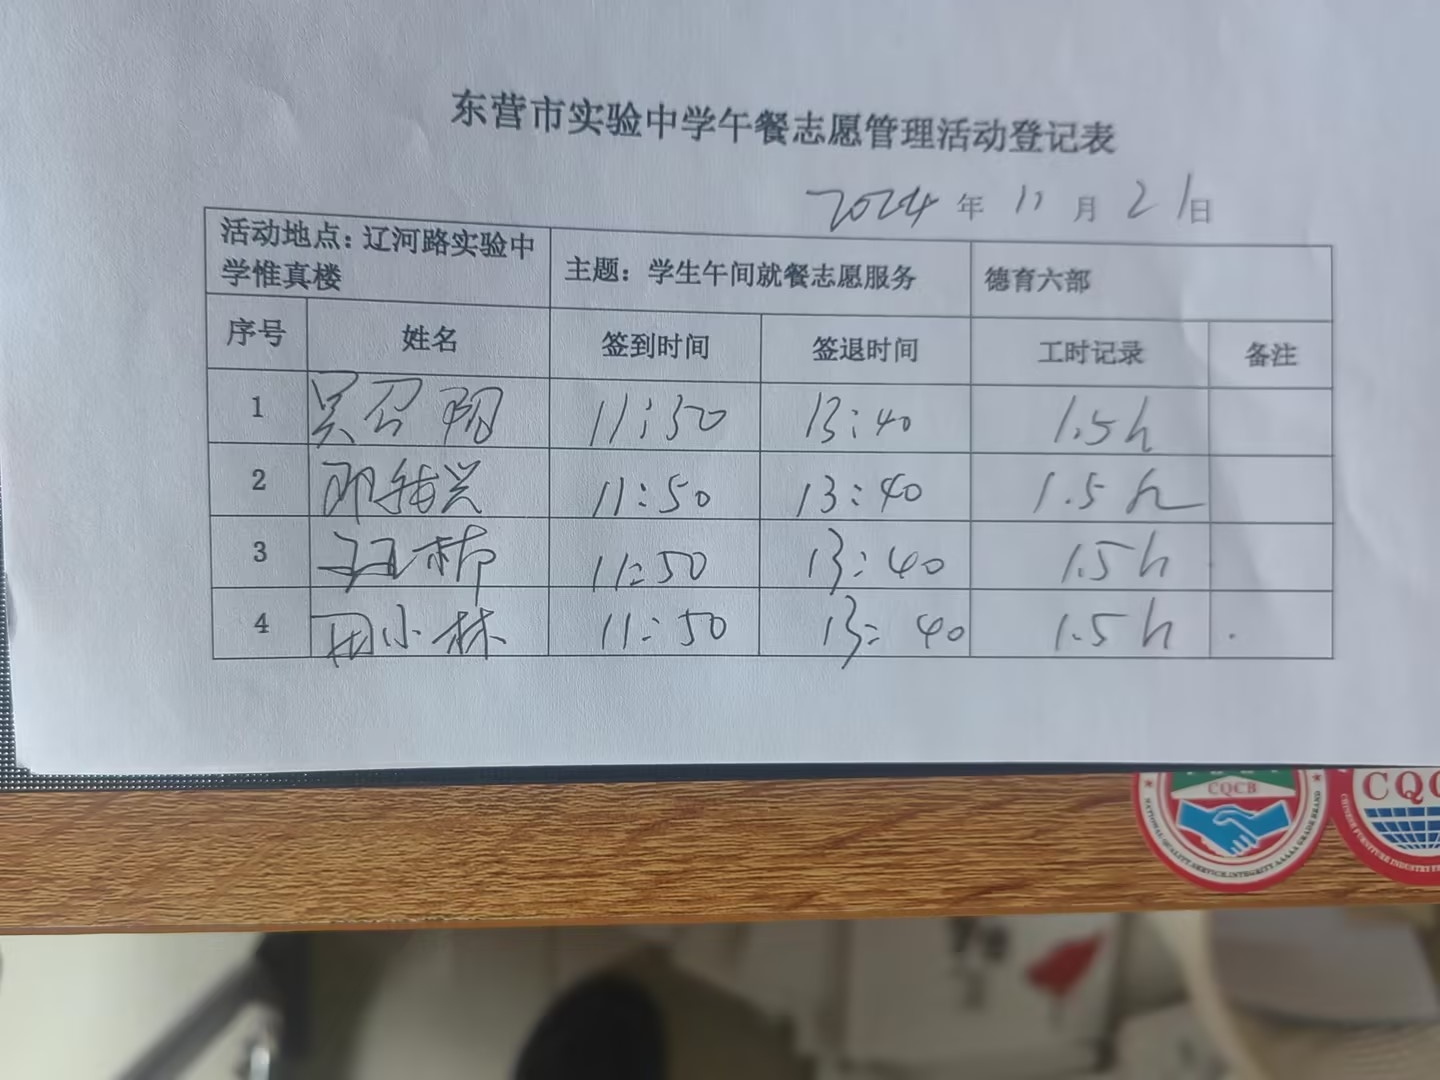 东营市实验中学午餐志愿管理活动登记表
2024 年 11 月 21 日
活动地点：辽河路实验中学惟真楼 主题：学生午间就餐志愿服务 德育六部
序号 姓名 签到时间 签退时间 工时记录 备注
1 吴召阳 11:50 13:40 1.5h
2 邓 兴 11:50 13:40 1.5h
3 11:50 13:40 1.5h
4 田小林 11:50 13:40 1.5h
CQCB
NATIONAL QUALITY SERVICE INTEGRITY AAAAA GRADE BRAND
CQC
CHINESE FURNITURE INDUSTRY